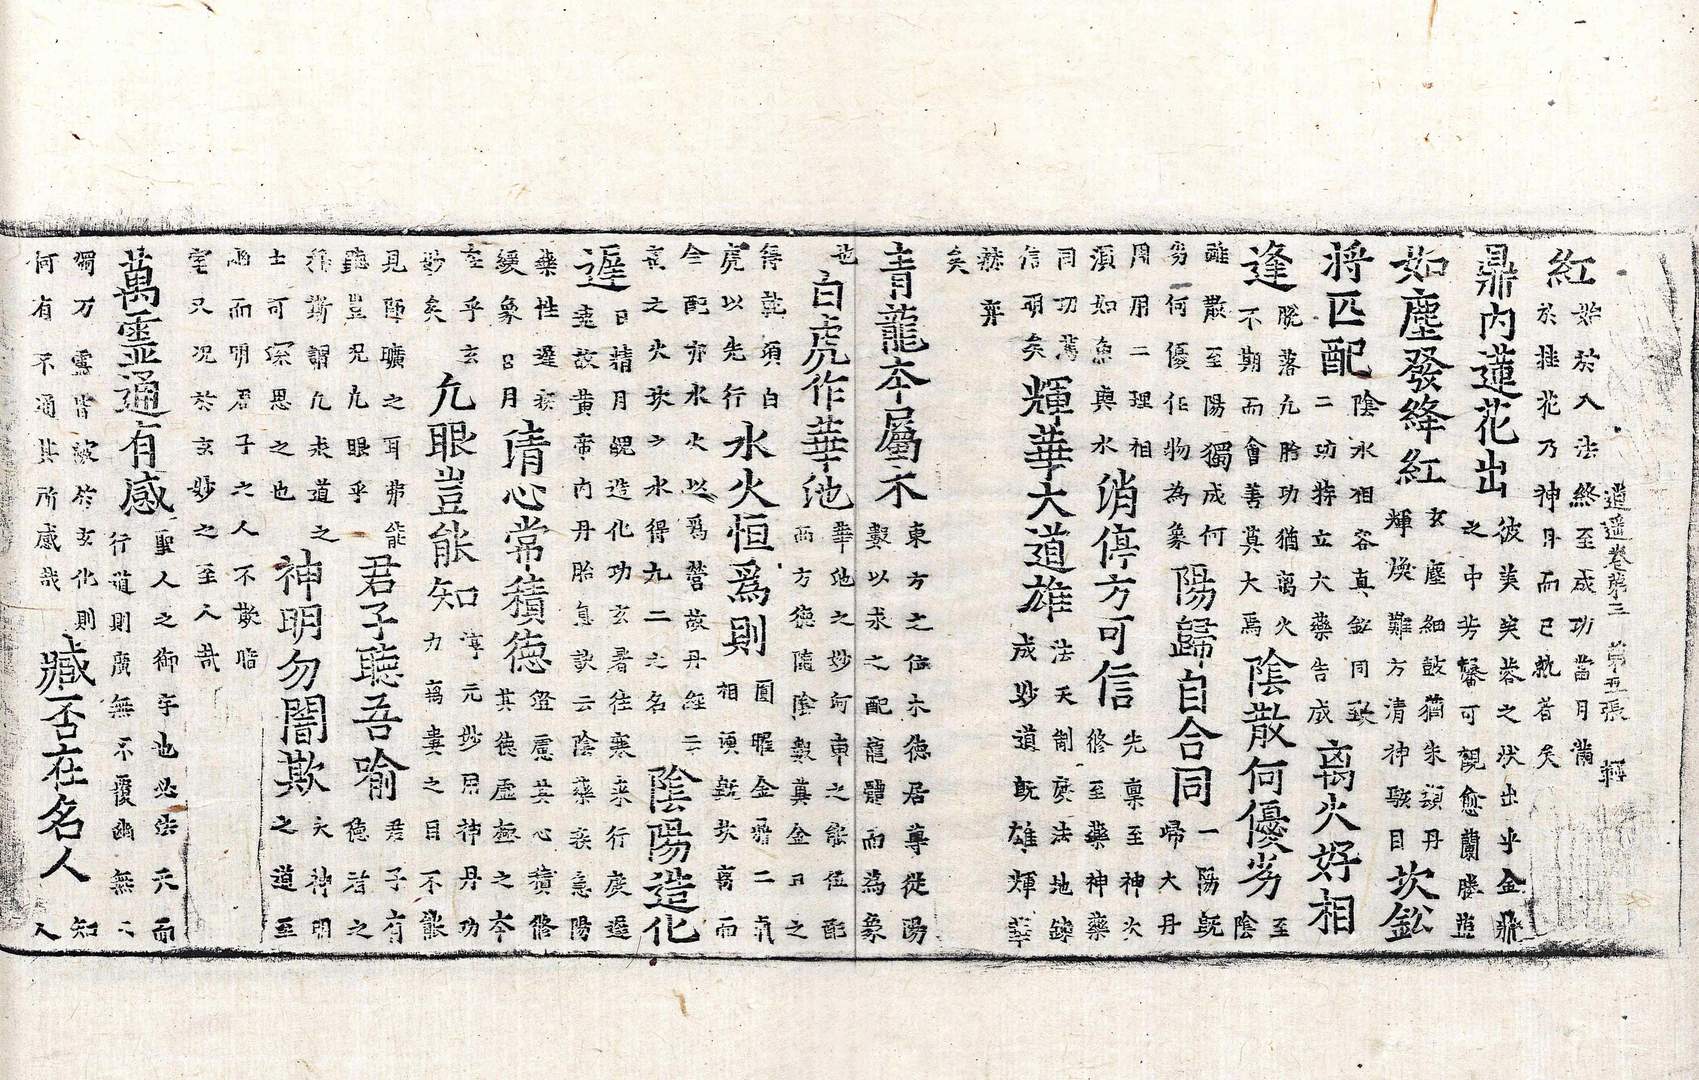 逍遥卷第三 第五張
紅 始於入法終至成功當月滿
於桂花乃神丹而已就者矣
鼎内蓮花出 彼芙蓉之狀出乎金鼎
之中芳馨可觀愈蘭勝蓮
如塵發絳紅 玄塵細鼓猶朱顏丹
輝煥難方清神駭目 坎鈆
將匹配 陰水相容真鈆同致
二功特立大藥告成 离火好相
逢 脫落九胎功猶离火
不期而會善莫大焉 陰散何優劣 至陰
離散至陽獨成何
劣何優作物為象 陽歸自合同 一陽既
歸大丹
用用二理相
須如魚與水 消停方可信 先稟至神次
修至藥神藥
同功萬
信明矣 輝華大道雄 法天制度法地鍊
成妙道既雄輝華
赫奔
矣
青龍本屬木 東方之位木德居尊從陽
數以求之配龍體而為象
也 白虎作華池 華池之妙河車之能位配
西方德隨陰數真金丹之
得乾須白
虎以先行 水火恒爲則 圓曜金二氣
相須坎离而
全配亦水火以爲營故丹經云
之火坎之水得九二之名 陰陽造化
遲 日精月魄造化功玄暑往寒來行度遲
速故黄帝内丹胎息訣云陰藥疾急陽
藥性遲疾
緩象日月 清心常積德 澄慮其心積修
其德虚極之本
至乎玄
妙矣 凡眼豈能知 淳元妙用神丹功
力窩之目不能
見師曠之耳弗能
聽豈况凡眼乎 君子聽吾喻 君子有
德之
稱斯謂凡求道之
士可深思之也 神明勿闇欺 夫神明
之道至
幽而明君子之人不欺暗
室又况於玄妙之至人哉
萬靈通有感 聖人之御宇也必法天而
行道則廣無不覆幽無不
燭万靈皆被於玄化則
何有不通其所感哉 臧否在名人 知
人